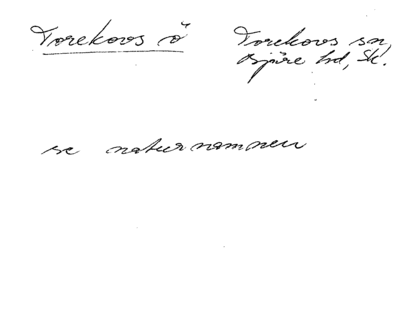 Torekovs ö
Torekovs sn,
Bjäre hd, Sk.
se naturnamnen